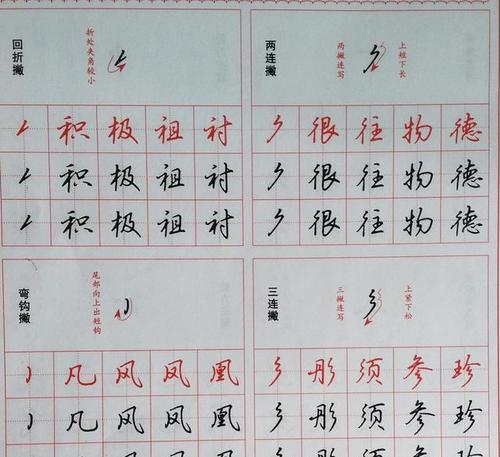 回折撇
折处夹角较小
积 极 祖 衬
积 极 祖 衬
积 极 祖 衬
两连撇
两撇连写
上短下长
很 往 物 德
很 往 物 德
很 往 物 德
弯钩撇
尾部向上出短钩
凡 风 凤 凰
凡 风 凤 凰
三连撇
三撇连写
上紧下松
彡 彤 须 参 珍
彡 彤 须 参 珍